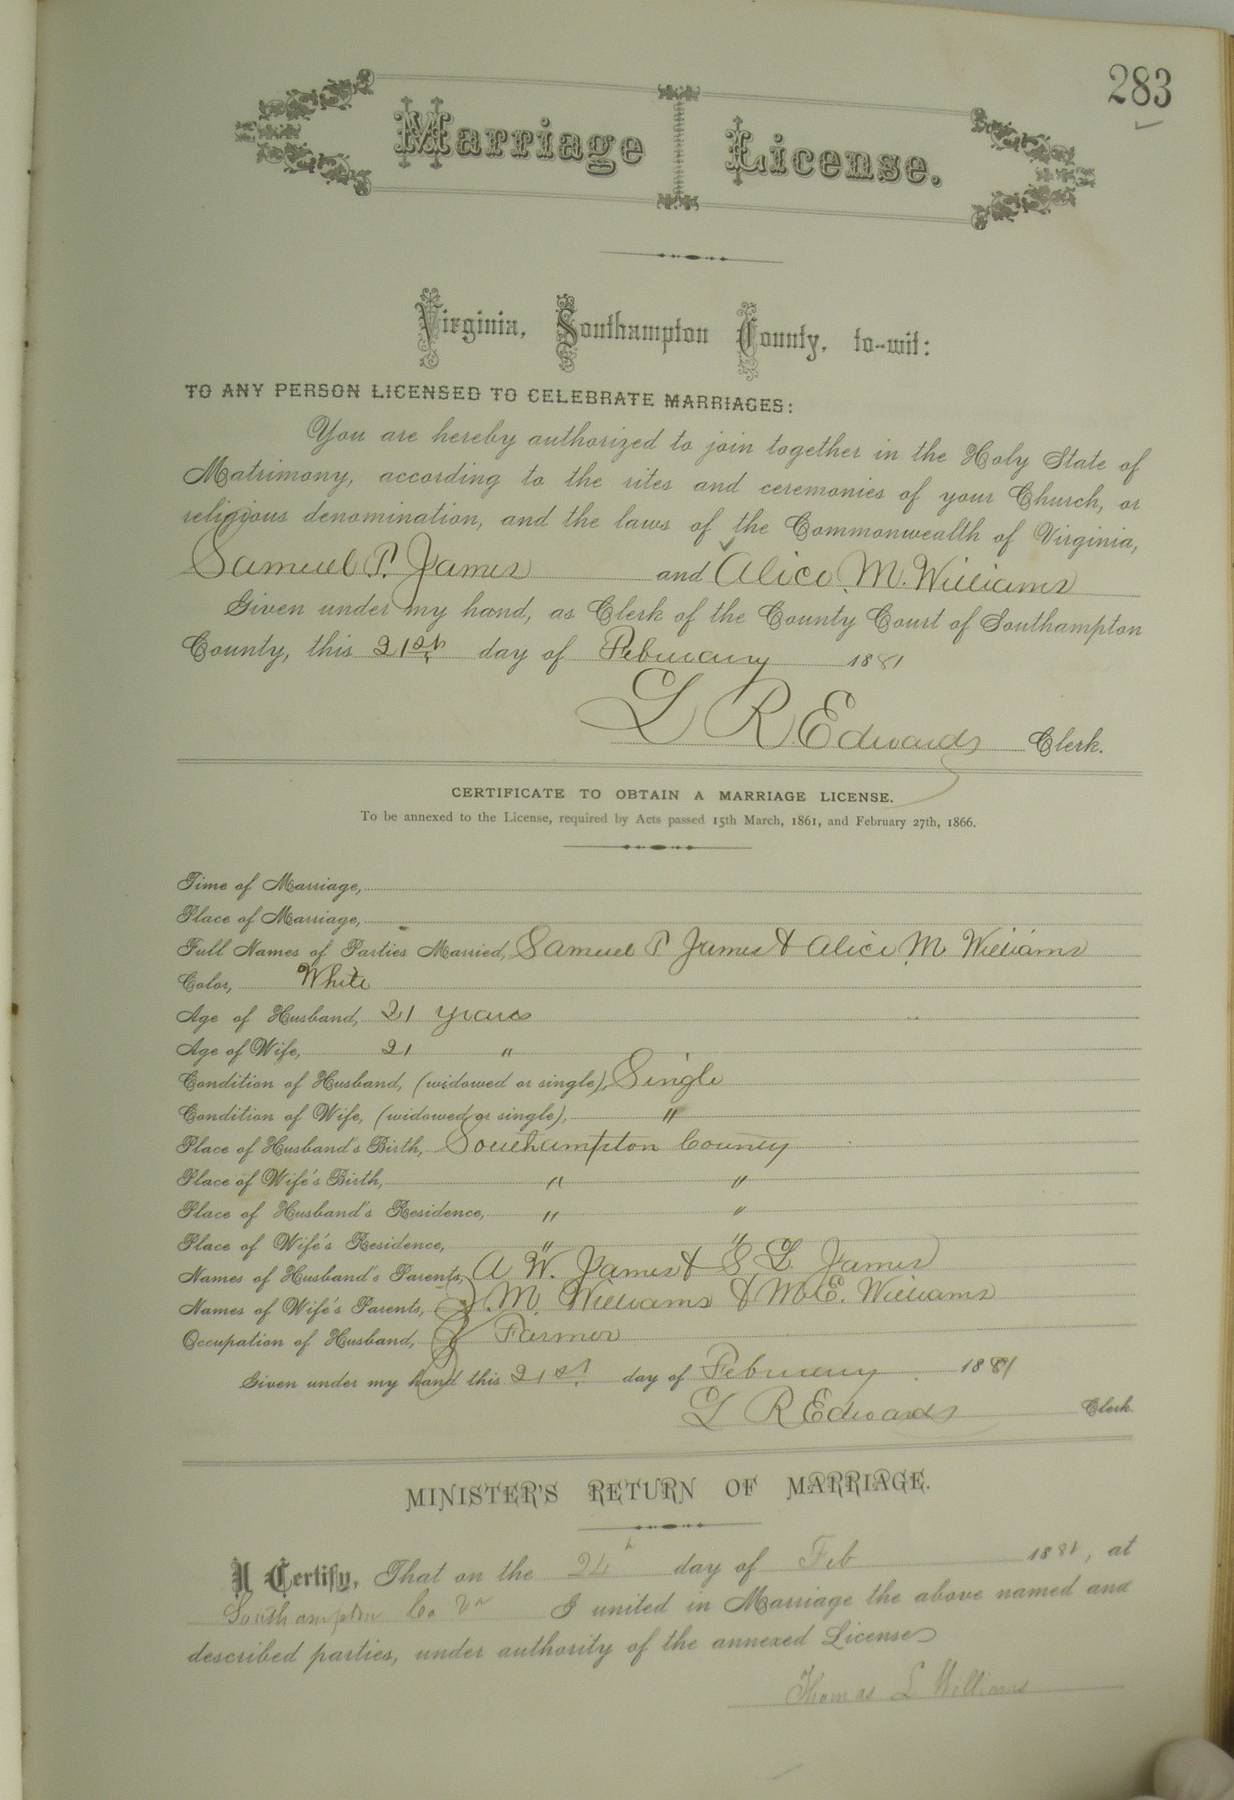 283
Marriage License.
Virginia, Southampton County, to-wit:
TO ANY PERSON LICENSED TO CELEBRATE MARRIAGES:
You are hereby authorized to join together in the Holy State of
Matrimony, according to the rites and ceremonies of your Church, or
religious denomination, and the laws of the Commonwealth of Virginia,
Samuel P. James and Alice M. Williams
Given under my hand, as Clerk of the County Court of Southampton
County, this 21st day of February 1881
L R Edwards Clerk.
CERTIFICATE TO OBTAIN A MARRIAGE LICENSE.
To be annexed to the License, required by Acts passed 15th March, 1861, and February 27th, 1866.
Time of Marriage,
Place of Marriage,
Full Names of Parties Married, Samuel P James & Alice M Williams
Color, White
Age of Husband, 21 years
Age of Wife, 21 "
Condition of Husband, (widowed or single), Single
Condition of Wife, (widowed or single), "
Place of Husband's Birth, Southampton County
Place of Wife's Birth, " "
Place of Husband's Residence, " "
Place of Wife's Residence, " "
Names of Husband's Parents, A W. James & S. L. James
Names of Wife's Parents, J. M. Williams & M. E. Williams
Occupation of Husband, Farmer
Given under my hand this 21st. day of February 1881
L R Edwards Clerk.
MINISTER'S RETURN OF MARRIAGE.
I Certify, That on the day of Feb 1881, at
Southampton Co Va I united in Marriage the above named and
described parties, under authority of the annexed License
Thomas L Williams